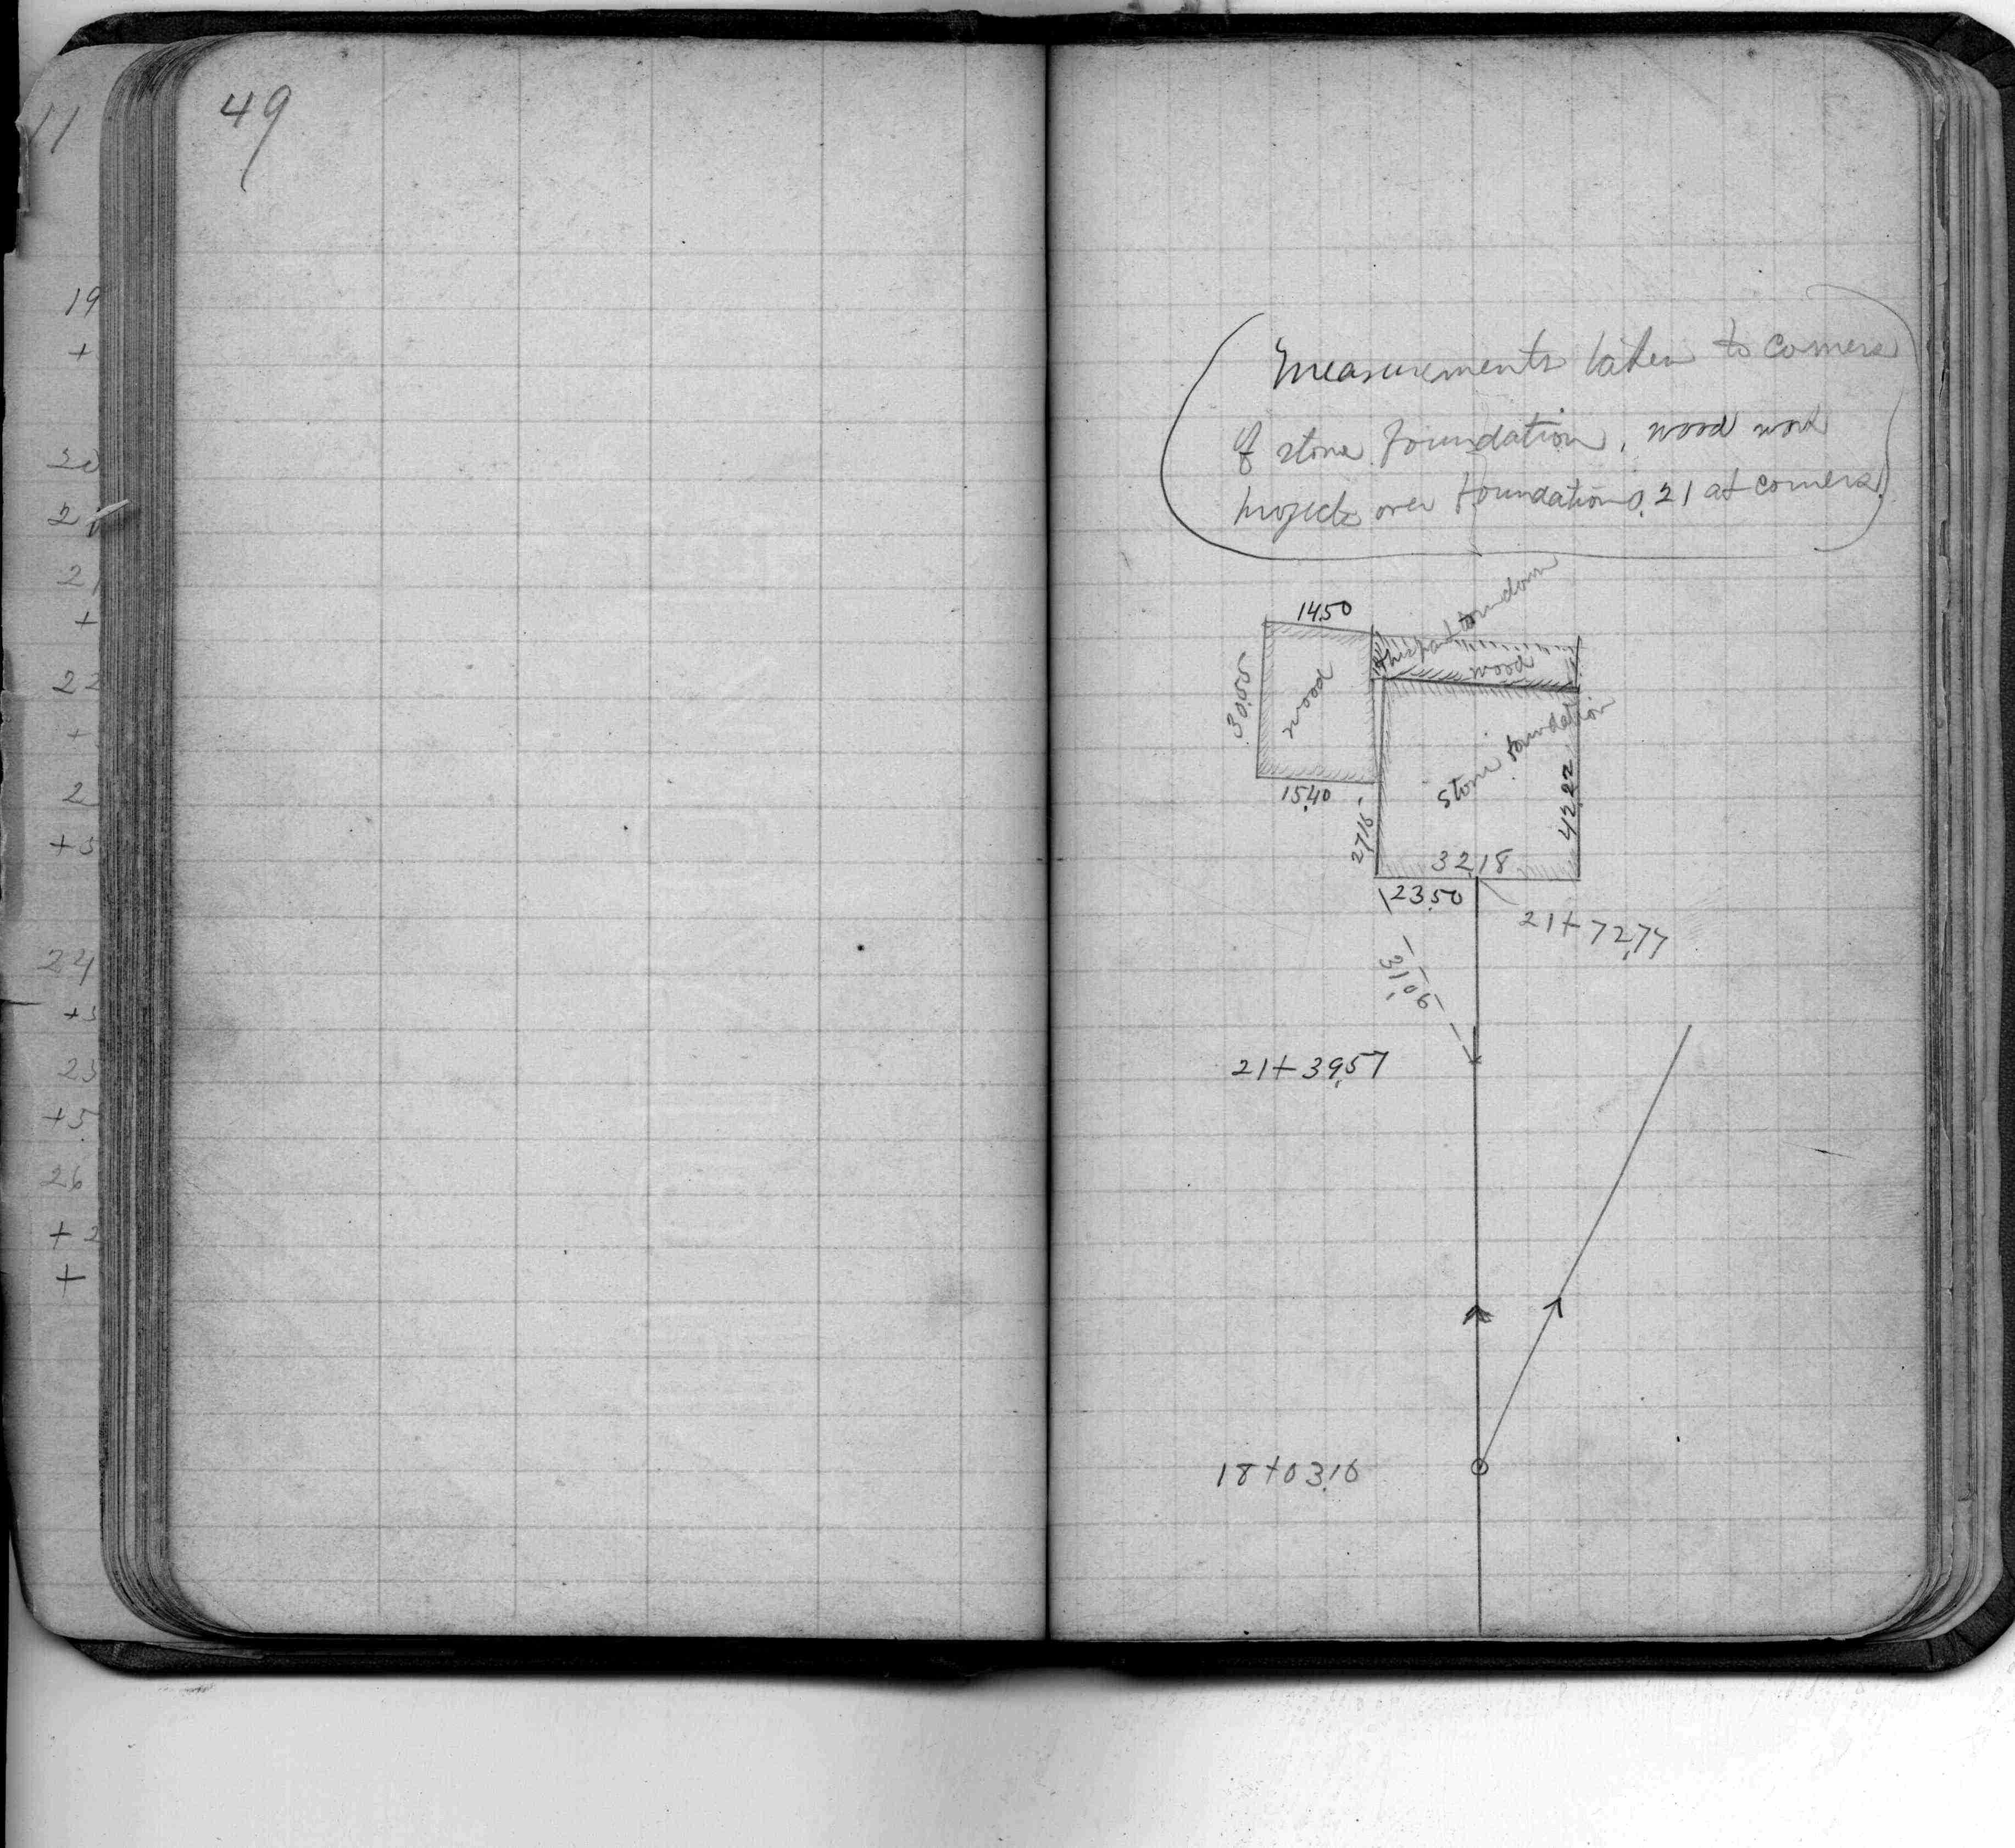 49
11
19
+
20
21
+
22
+
2
+3
24
+3
23
+5
26
+2
+
Measurements taken to corners
of stone foundation, wood work
projects over foundation 0.21 at corners
this part torn down
14.50
wood
wood
30.00
stone foundation
15.40
42.22
32.18
23.50
21+72.77
21+39.57
18+03.10